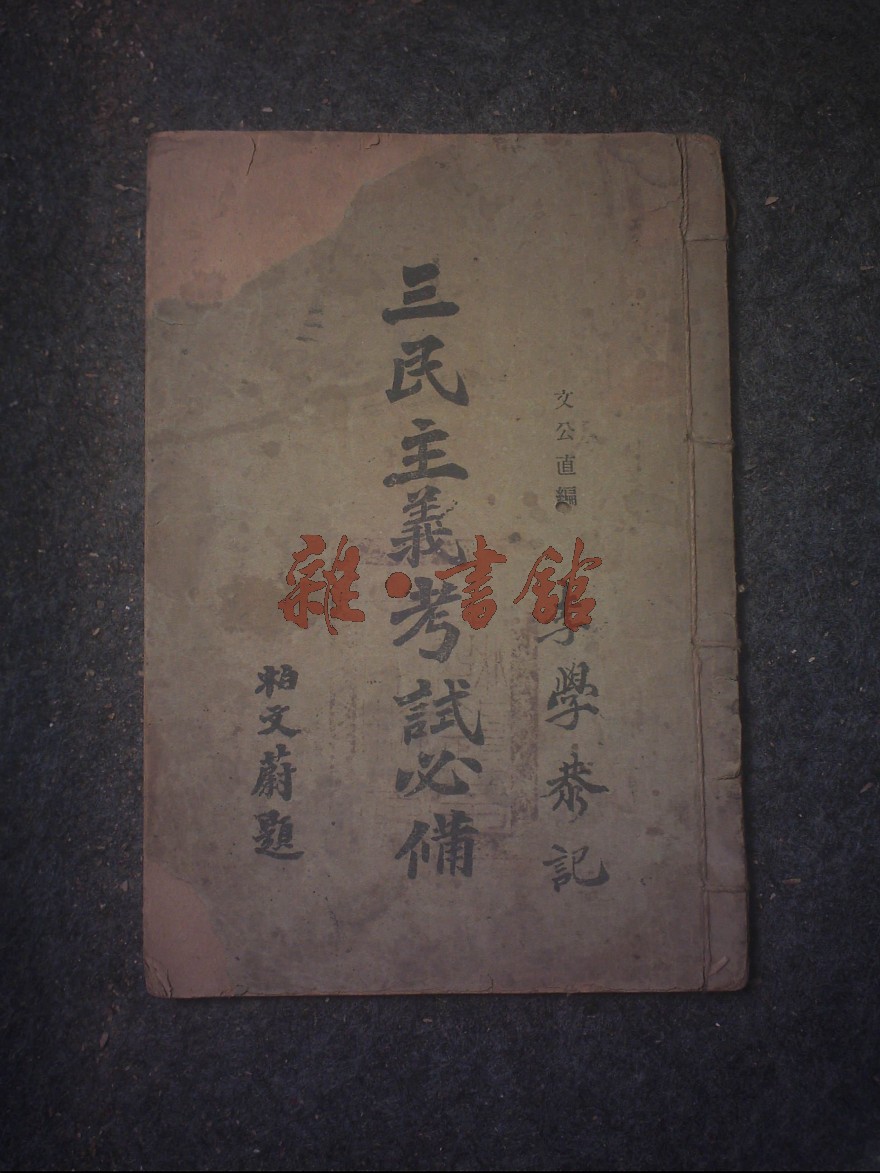 文公直編
李學恭記
三民主義考試必備
柏文蔚題
雜·書館